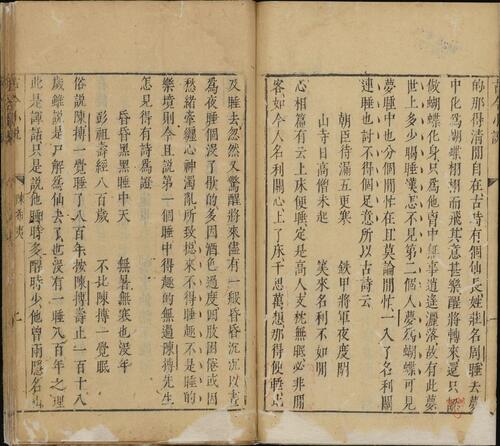 的那得清閒自在古時有個仙長姓莊名周睡去夢
中化為蝴蝶栩栩而飛其意甚樂醒將轉來還只認
做蝴蝶化身只為他胷中無事逍遙灑落故有此夢
世上多少瞌睡漢怎不見第二個人夢為蝴蝶可見
夢睡中也分個閒忙在且莫論閒忙一入了名利關
連睡也討不得個足意所以古詩云
朝臣待漏五更寒　鉄甲將軍夜度関
山寺日高僧未起　筭來名利不如閒
心相篇有云上床便睡定是高人支枕無眠必非閒
客如今人名利關心上了床千思萬想那得便睡比
及睡去忽然又驚醒將來儘有一般昏昏沉沉以晝
為夜睡個沒了歇的多因酒色過度四肢困倦或因
愁緒牽纏心神濁亂所致總來不得睡趣不是睡的
樂境則今且說第一個睡中得趣的無過陳摶先生
怎見得有詩為證
昏昏黑黑睡中天　無暑無寒也沒年
彭祖壽經八百歲　不比陳摶一覺眠
俗說陳摶一覺睡了八百年按陳摶壽止一百十八
歲雖說是尸解為仙去了也沒有一睡八百年之理
此是諢話只是說他睡時多醒時少他曾兩隱名山
古今小說　陳希夷　二